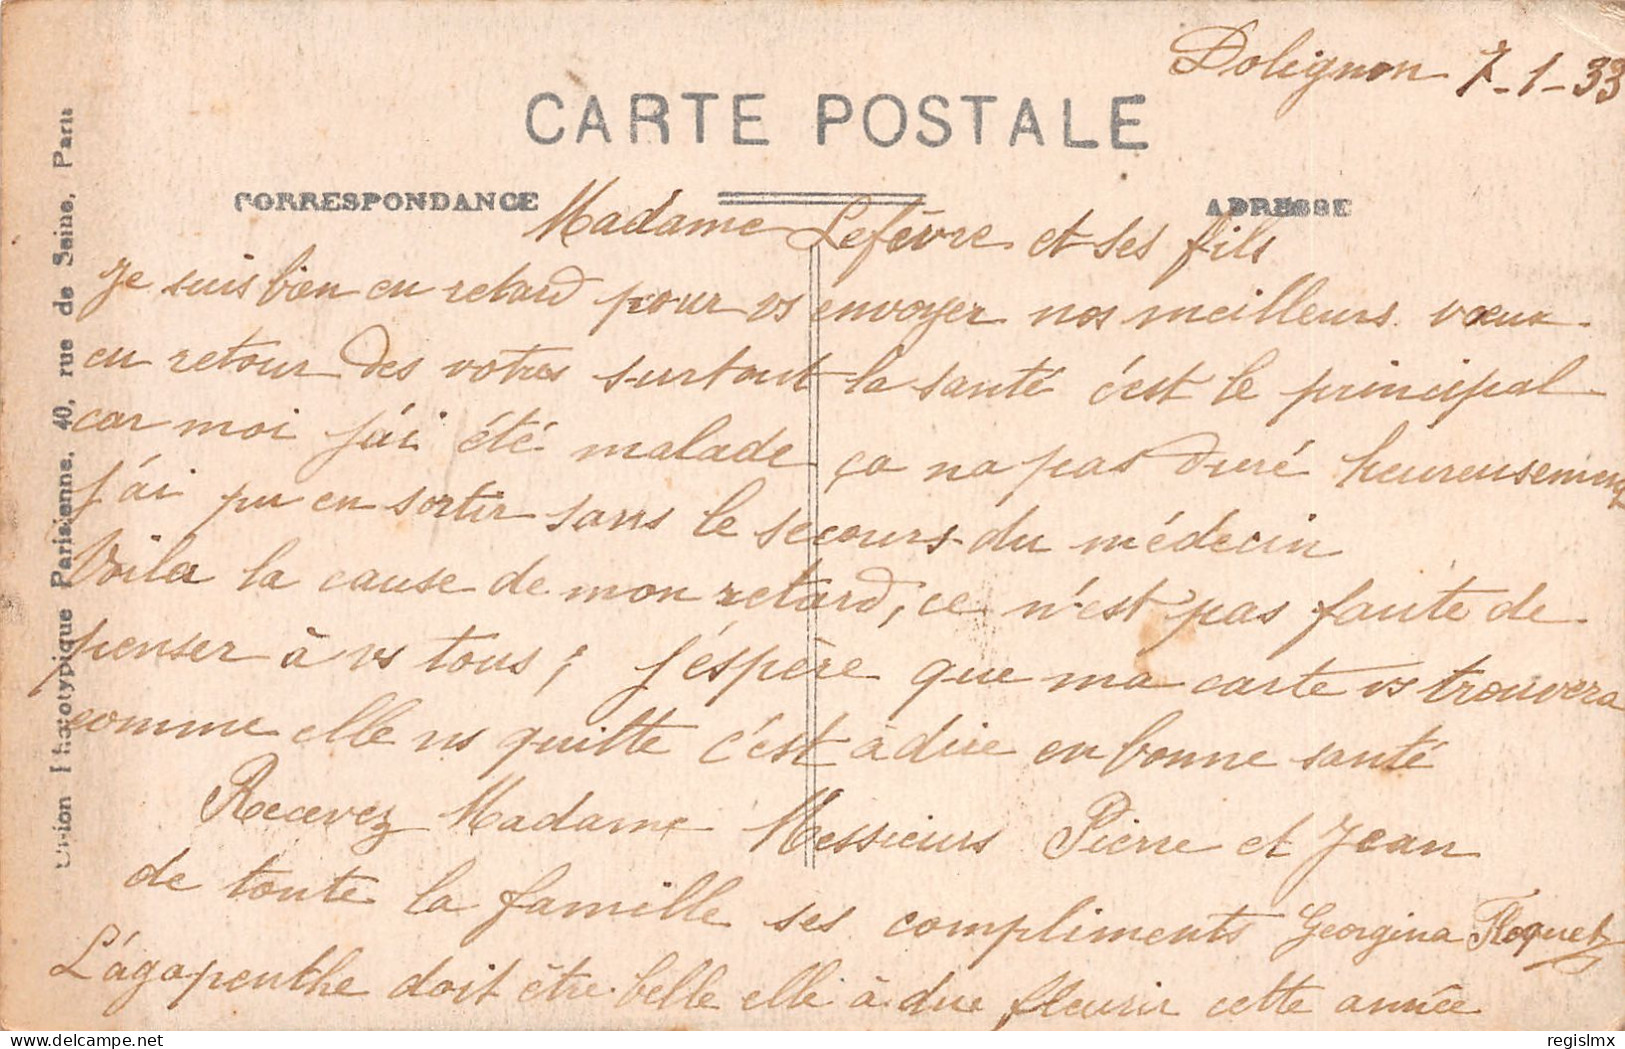 Dolignon 7-1-33
CARTE POSTALE
CORRESPONDANCE
ADRESSE
Madame Lefèvre et ses fils
Je suis bien en retard pour vs envoyer nos meilleurs vœux
en retour des votres surtout la santé c'est le principal
car moi j'ai été malade ça na pas duré heureusement
j'ai pu en sortir sans le secours du médecin
Voila la cause de mon retard, ce n'est pas faute de
penser à vs tous; j'éspère que ma carte vs trouvera
comme elle ns quitte c'est à dire en bonne santé
Recevez Madame Messieurs Pierre et Jean
de toute la famille ses compliments Georgina Floquet
L'agapenthe doit être belle elle à due fleurir cette année
Union Phototypique Parisienne, 40, rue de Seine, Paris
delcampe.net
regislmx